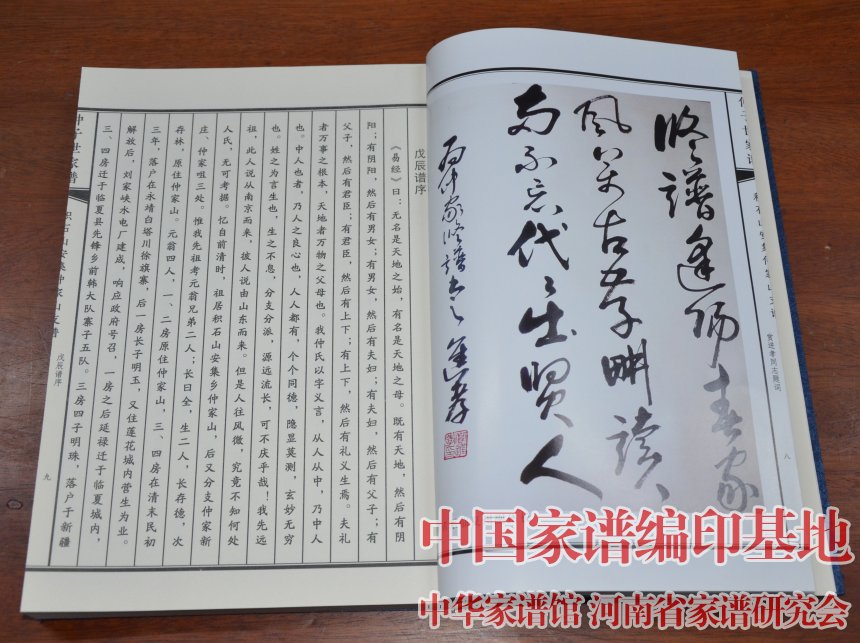 修谱逢阳春家
风万古孝耕读
而不忘代代出贤人
贺进孝同志题词
八
戊辰谱序
《易经》曰：无名是天地之始，有名是天地之母。既有天地，然后有阴
阳；有阴阳，然后有男女；有男女，然后有夫妇；有夫妇，然后有父子；有
父子，然后有君臣；有君臣，然后有上下；有上下，然后有礼义生焉。夫礼
者万事之根本，天地者万物之父母也。我仲氏以字义言，从人从中，乃中人
也。中人也者，乃人之良心也，人人都有，个个同德，隐显莫测，玄妙无穷
也。姓之为言生也，生之不息，分支分派，源远流长，可不庆乎哉！我先远
祖，此人说从南京而来，彼人说由山东而来。但是人往风微，究竟不知何处
人氏，无可考据。忆自前清时，祖居积石山安集乡仲家山，后又分支仲家新
庄、仲家咀三处。惟我先祖考元翁兄弟二人；长曰全，生二人，长存德，次
存林，原住仲家山。元翁四人，一、二房原住仲家山，三、四房在清末民初
三年，落户在永靖白塔川徐旗寨，后一房长子明玉，又住莲花城内营生为业。
解放后，刘家峡水电厂建成，响应政府号召，一房之后延禄迁于临夏城内，
三、四房迁于临夏县先锋乡前韩大队寨子五队。三房四子明珠，落户于新疆
仲子世家谱
积石山安集仲家山支谱
戊辰谱序
九
中国家谱编印基地
中华家谱馆 河南省家谱研究会